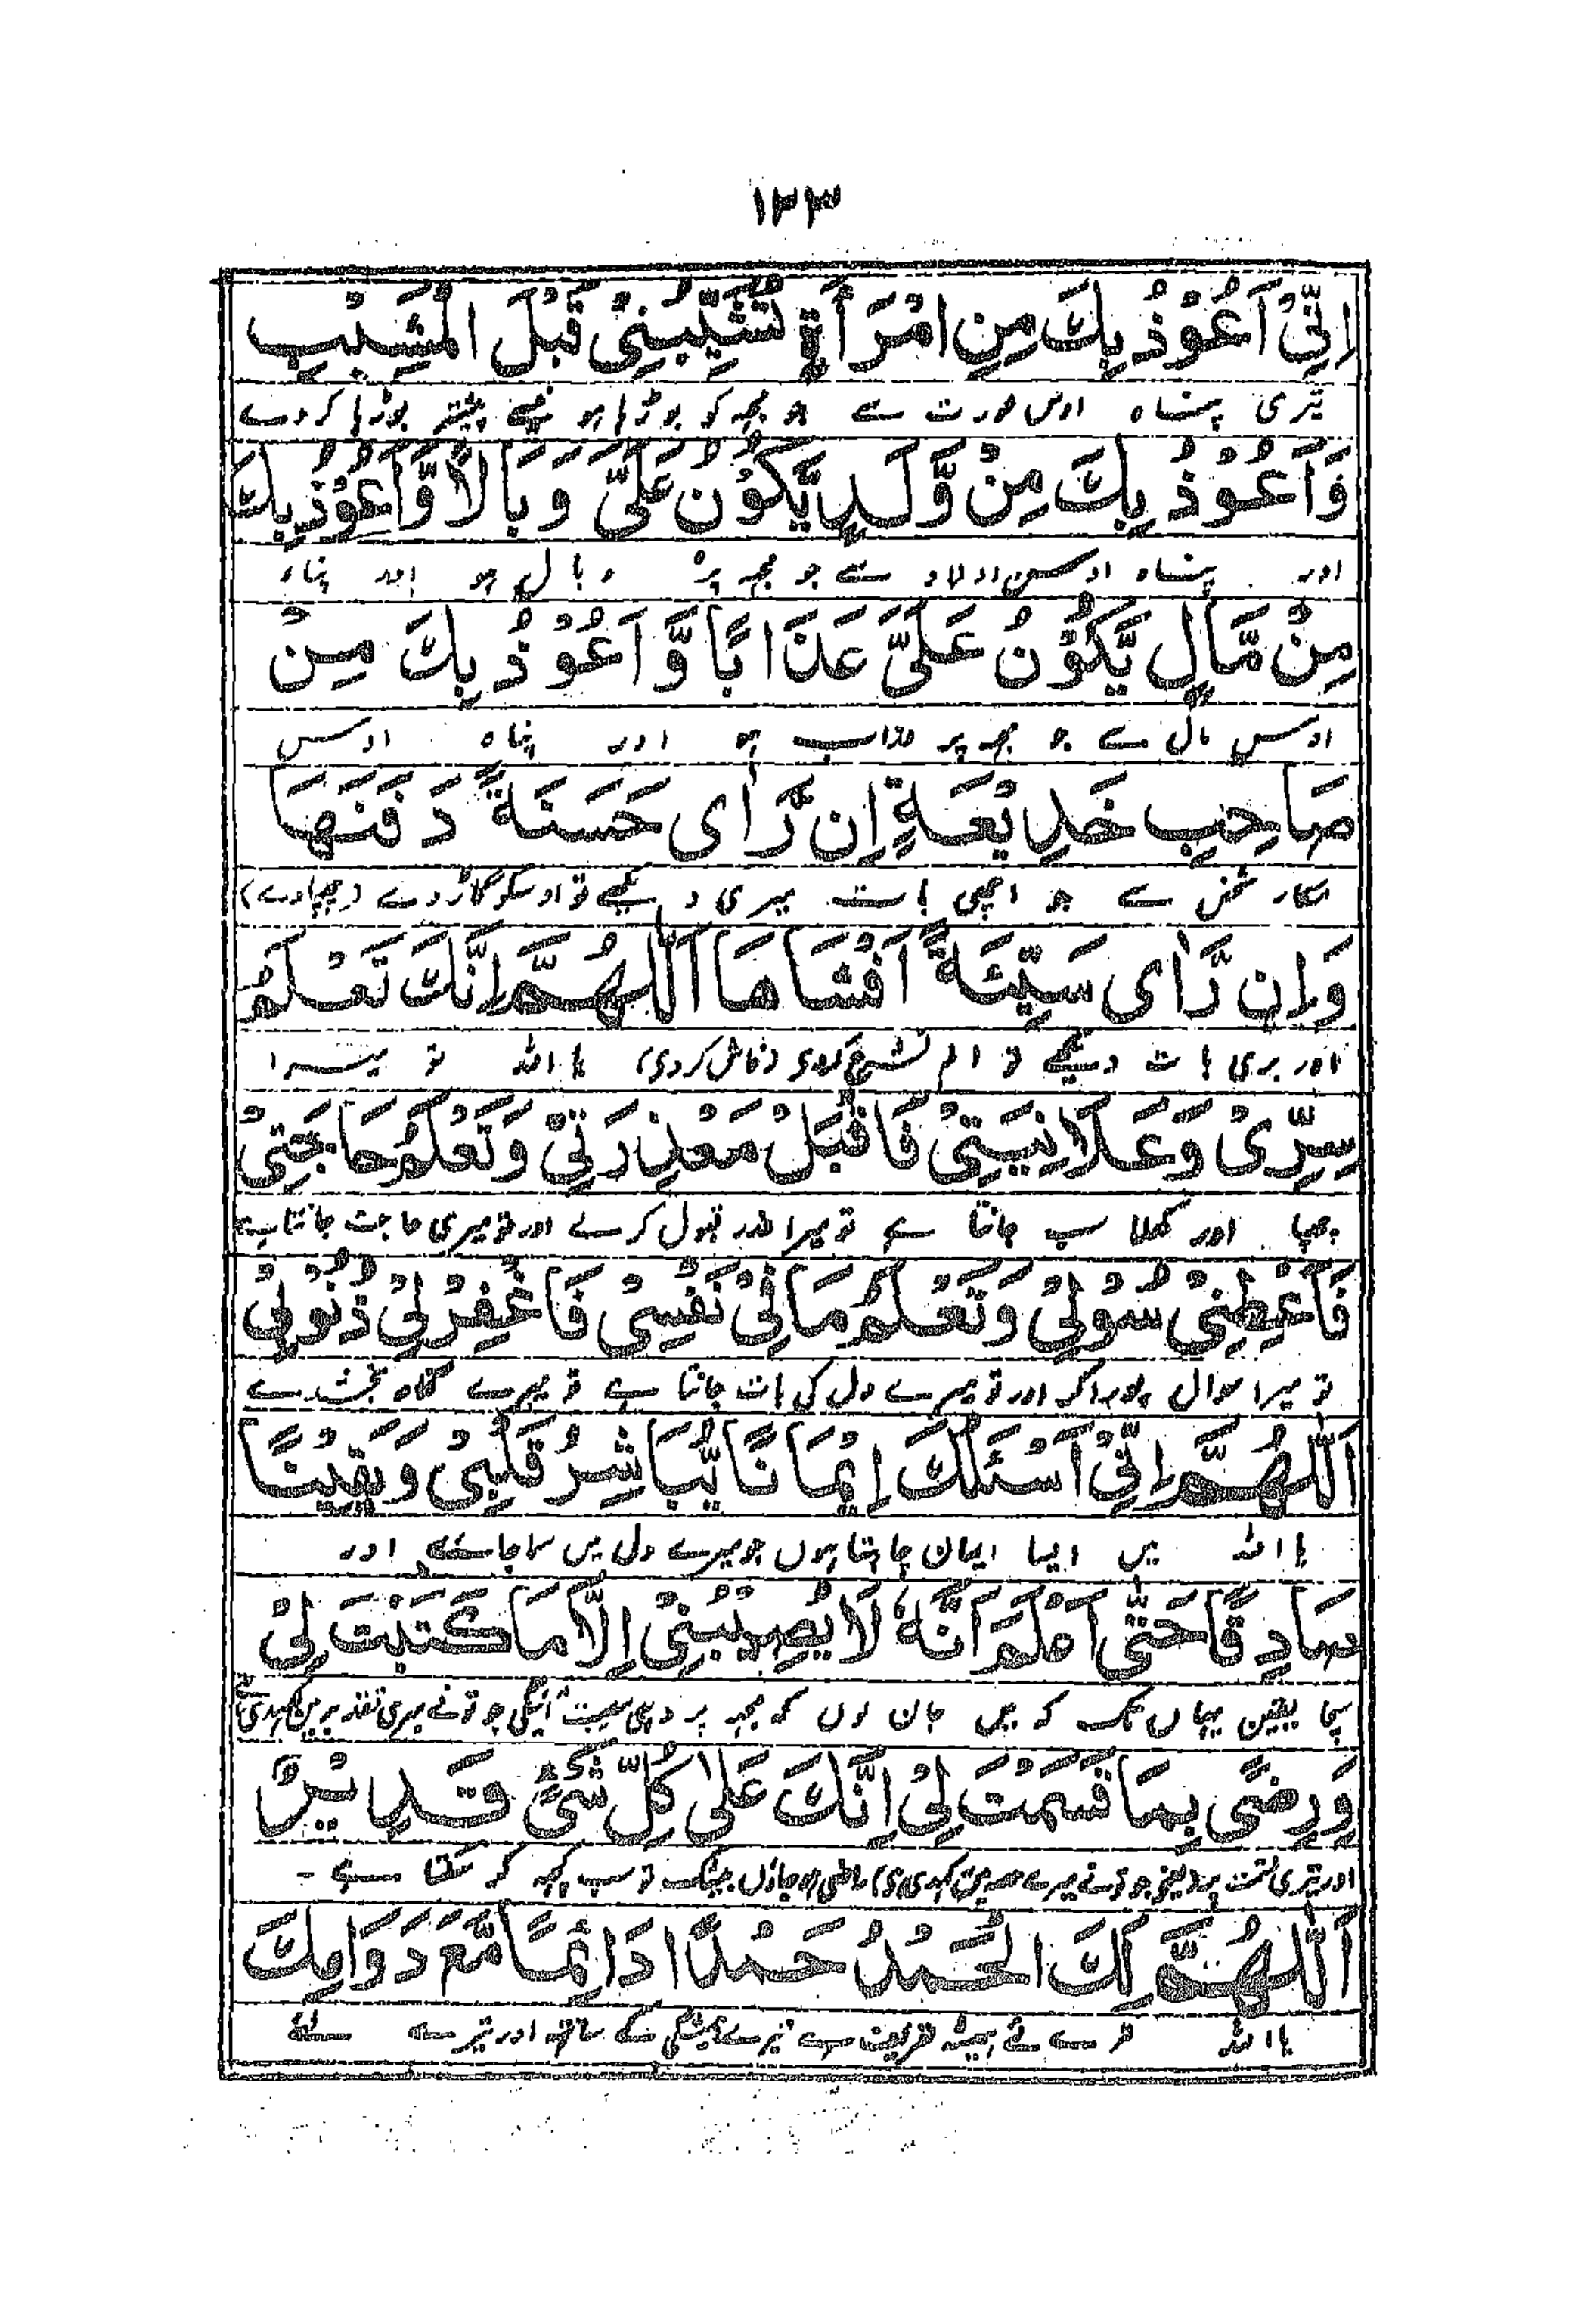 ۱۳۳
اِنِّىْ اَعُوْذُ بِكَ مِنِ امْرَأَةٍ تُشَيِّبُنِىْ قَبْلَ الْمَشِيْبِ
تیری پناہ اوس عورت سے جو مجہہ کو بوڑہا ہونیسے پیشتر بوڑہا کردے
وَاَعُوْذُ بِكَ مِنْ وَّلَدٍ يَّكُوْنُ عَلَىَّ وَبَالًا وَّاَعُوْذُ بِكَ
اور پناہ اوس اولاد سے جو مجہہ پر وبال ہو اور پناہ
مِنْ مَّالٍ يَّكُوْنُ عَلَىَّ عَذَابًا وَّاَعُوْذُ بِكَ مِنْ
اوس مال سے جو مجہہ پر عذاب ہو اور پناہ اوس
صَاحِبِ خَدِيْعَةٍ اِنْ رَّاٰى حَسَنَةً دَفَنَهَا
مکار شخص سے جو اچھی بات میری دیکھے تو اوسکو گاڑ دے (چھپادے)
وَاِنْ رَّاٰى سَيِّئَةً اَفْشَاهَا اَللّٰهُمَّ اِنَّكَ تَعْلَمُ
اور بری بات دیکھے تو الم نشرح کردی (فاش کردی) یا اللہ تو میرا
سِرِّىْ وَعَلَانِيَتِىْ فَاقْبَلْ مَعْذِرَتِىْ وَتَعْلَمُ حَاجَتِىْ
چھپا اور کھلا سب جانتا ہے تو میرا عذر قبول کرلے اور تو میری حاجت جانتا ہے
فَاَعْطِنِىْ سُولِىْ وَتَعْلَمُ مَا فِىْ نَفْسِىْ فَاغْفِرْ لِىْ ذُنُوْبِىْ
تو میرا سوال پورا کر اور تو میرے دل کی بات جانتا ہے تو میرے گناہ بخشدے
اَللّٰهُمَّ اِنِّىْ اَسْئَلُكَ اِيْمَانًا يُّبَاشِرُ قَلْبِىْ وَيَقِيْنًا
یا اللہ میں ایسا ایمان چاہتا ہوں جو میرے دل میں سما جائے اور
صَادِقًا حَتّٰى اَعْلَمَ اَنَّهٗ لَا يُصِيْبُنِىْ اِلَّا مَا كَتَبْتَ لِىْ
سچا یقین یہاں تک کہ میں جان لوں کہ مجہہ پر وہی مصیبت آئیگی جو تونے میری تقدیر میں لکہدی ہے
وَرِضًى بِمَا قَسَمْتَ لِىْ اِنَّكَ عَلٰى كُلِّ شَىْءٍ قَدِيْرٌ
اور تیری قسمت پر (یعنی جو تونے میرے حصہ میں لکہدی ہی) راضی ہو جاؤں بیشک تو سب کچہہ کر سکتا ہے -
اَللّٰهُمَّ لَكَ الْحَمْدُ حَمْدًا دَائِمًا مَّعَ دَوَامِكَ
یا اللہ تیرے لئے ہمیشہ تعریف ہے تیرے ہمیشگی کے ساتھ اور تیرے لئے